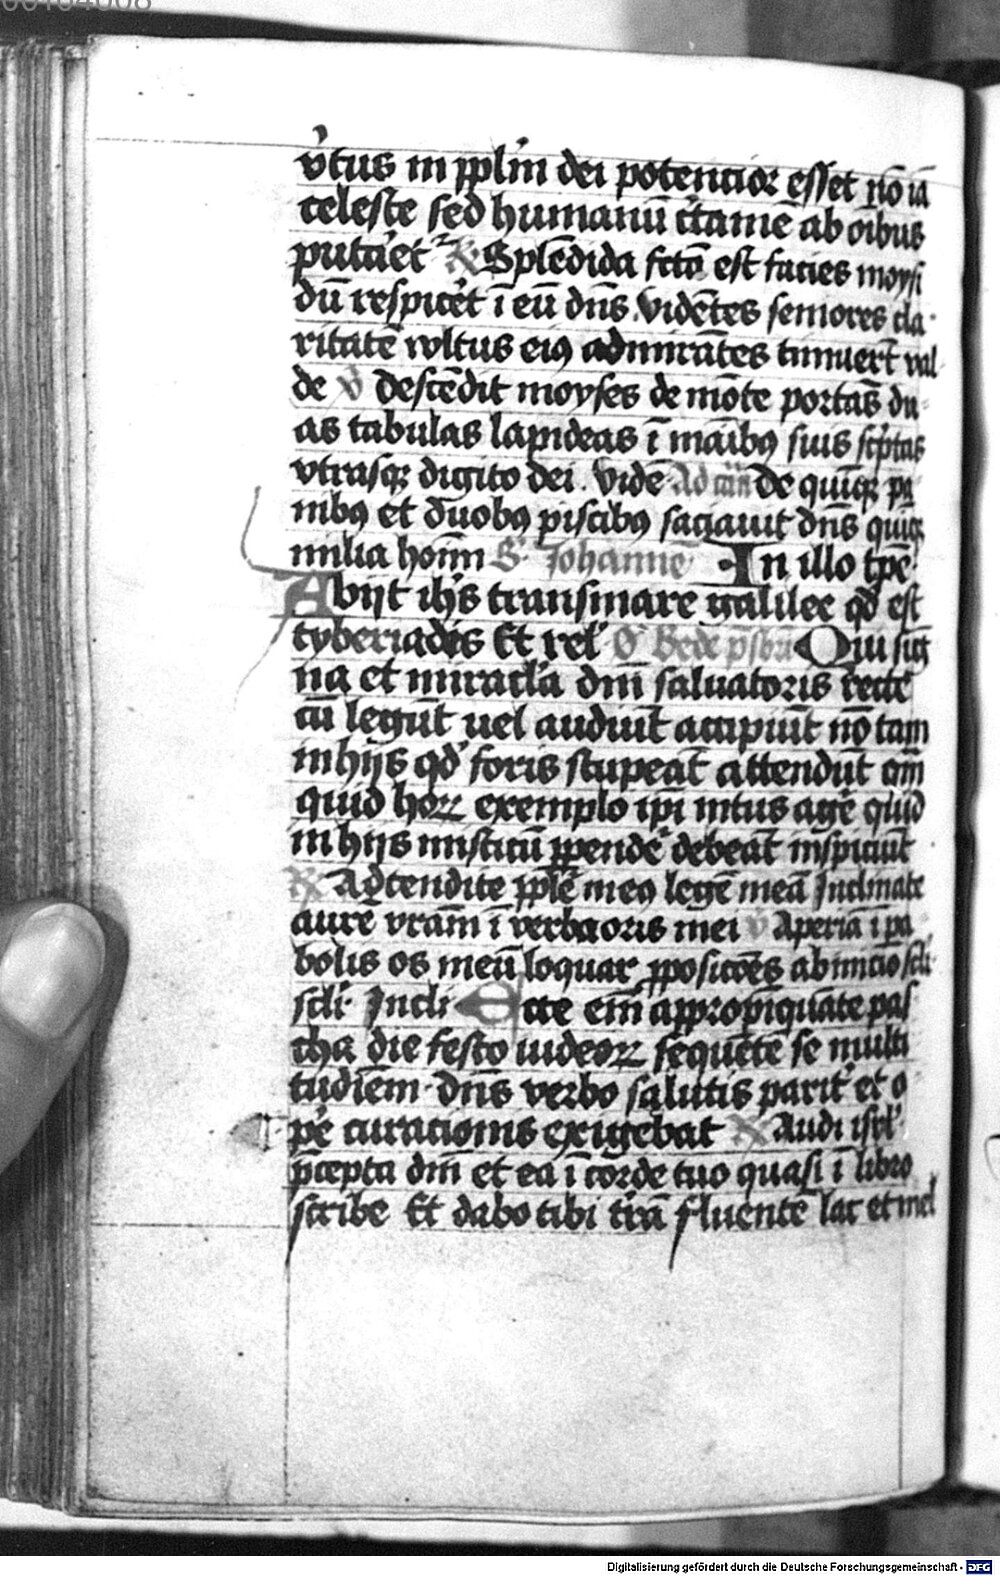 v̓tus in ppl̅m dei potencior esset nō iā
celeste sed humanū c̓tamē ab oībus
puta̓et ℟ Splēdida fctā est facies moysi
dū respice̓t ī eū dn̄s vidētes seniores cla
ritatē wltus eiꝰ admirātes timuerūt val
de ℣ descēdit moyses de mōte portās du
as tabulas lapideas ī maībꝰ suis sc̓ptas
vtrasqꝫ digito dei . vide De quīqꝫ pa
nibꝰ et duobꝰ piscibꝰ saciauit dn̄s quīqꝫ
milia hoīm S. Johannē In illo tp̄e
Abijt ih̄s trans mare galilee qd̓ est
tyberiadis Et rel̓ O̓ Bede Qui sig
na et miracl̓a dn̄i saluatoris recte
cū legūt uel audiūt accipiūt nō tam
in hijs qd̓ foris stupeāt attendūt
quid hoꝝ exemplo ip̄i intus age̓ quid
in hijs misticū ꝑpende̓ debeāt inspiciūt
℟ Adtendite pple̅ meꝰ legē meā Inclinate
aurē vrām ī verba oris mei ℣ Aperiā ī pa
bolis os meū loquar ꝓposicōes ab inicio scl̓i
scl̓i . Incli Ecce em̄ appropīquāte pas
cha die festo iudeoꝝ sequēte se multi
tudīem dn̄s verbo salutis parit̓ et o
pe̓ curacionis exigebat ℟ Audi isrl̓
p̄cepta dn̄i et ea ī corde tuo quasi ī libro
scribe Et dabo tibi t̓rā fluentē lac et mel
Digitalisierung gefördert durch die Deutsche Forschungsgemeinschaft - DFG